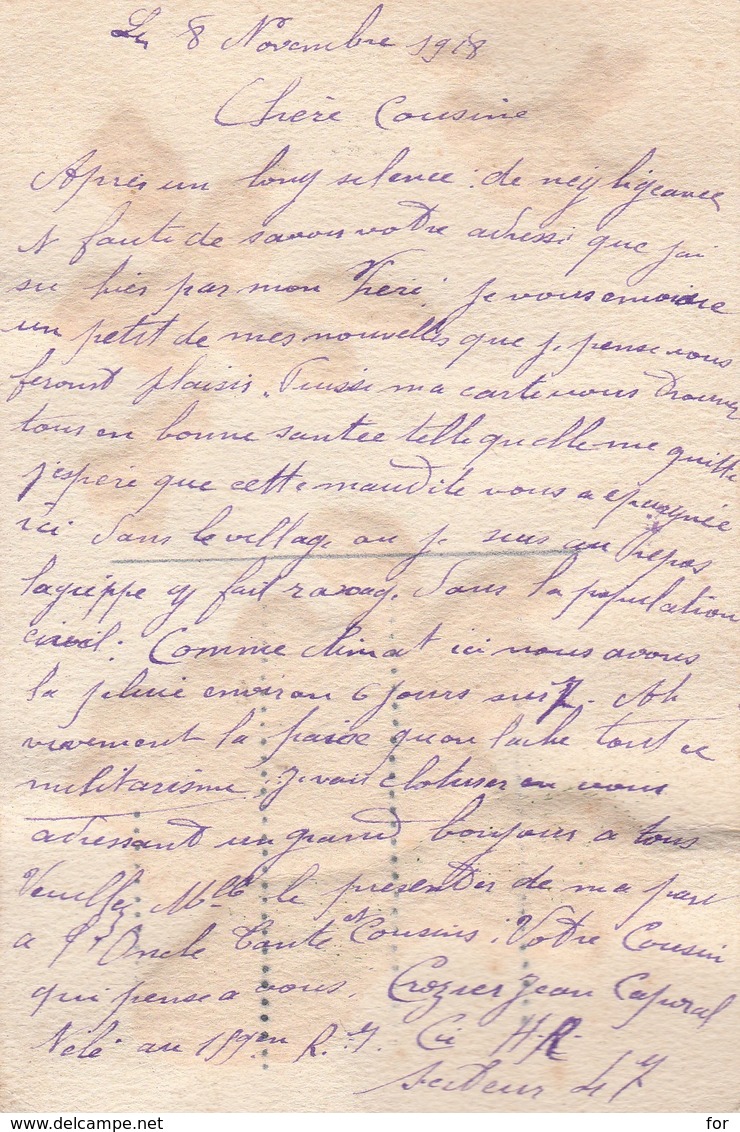 Le 8 Novembre 1918
Chère Cousine
Après un long silence de négligeance
et faute de savoir votre adresse que j'ai
su hier par mon frère, je vous envoie
un petit de mes nouvelles que je pense vous
feront plaisir. Puisse ma carte vous trouver
tous en bonne santée telle quelle me quitte
j'espère que cette maudite vous a épargnée
ici dans le village ou je suis au repos
la grippe y fait ravage dans la population
civil. Comme climat ici nous avons
la pluie environ 6 jours sur 7. Ah
vivement la paix qu'on lache tout ce
militarisme. Je vais cloturer en vous
adressant un grand bonjour a tous
Veuillez Mlle le présenter de ma part
a Oncle Tante Cousins. Votre Cousin
qui pense a vous. Crozier Jean Caporal
au R. I. Cie H.R.
Secteur 47
delcampe.net
for